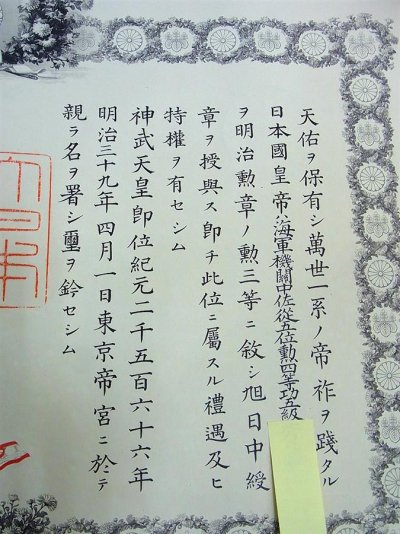 天佑ヲ保有シ萬世一系ノ帝祚ヲ踐タル
日本國皇帝ハ海軍機關中佐從五位勲四等功五級
ヲ明治勲章ノ勲三等ニ敘シ旭日中綬
章ヲ授與ス即チ此位ニ屬スル禮遇及ヒ
特權ヲ有セシム
神武天皇即位紀元二千五百六十六年
明治三十九年四月一日東京帝宮ニ於テ
親ラ名ヲ署シ璽ヲ鈐セシム